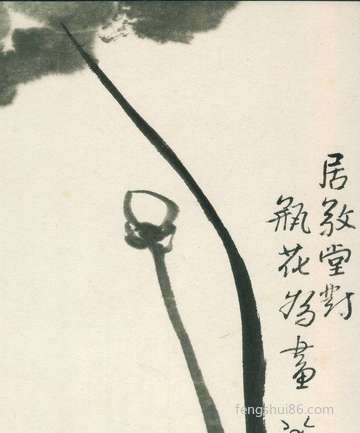 居敬堂對
瓶花為畫
fengshui86.com